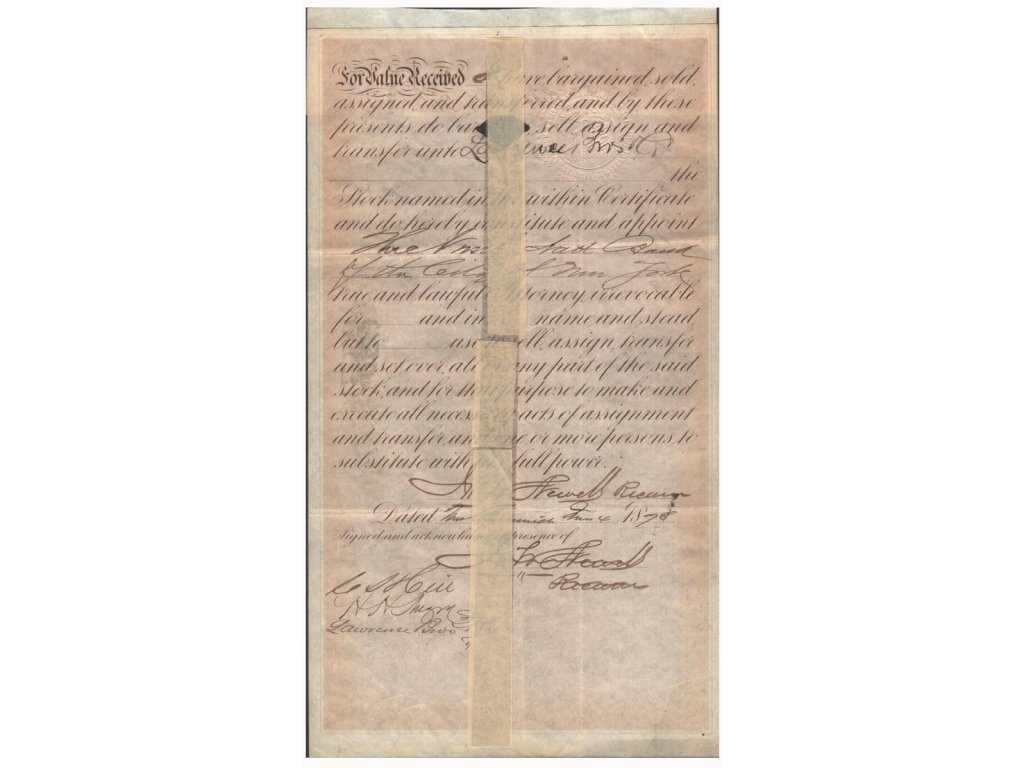 For Value Received have bargained, sold,
assigned, and transferred, and by these
presents do sell, assign and
transfer unto Lawrence Bros &
the
Stock named in the within Certificate
and do hereby constitute and appoint
Bank
of the City of New York
true and lawful attorney, irrevocable
for and in name and stead,
but to use to sell, assign, transfer
and set over, all or any part of the said
stock, and for that purpose to make and
execute all necessary acts of assignment
and transfer, and one or more persons to
substitute with full power.
Newell Receiver
Dated 4 1878
Signed and acknowledged presence of
W Newell
Receiver
Lawrence Bros